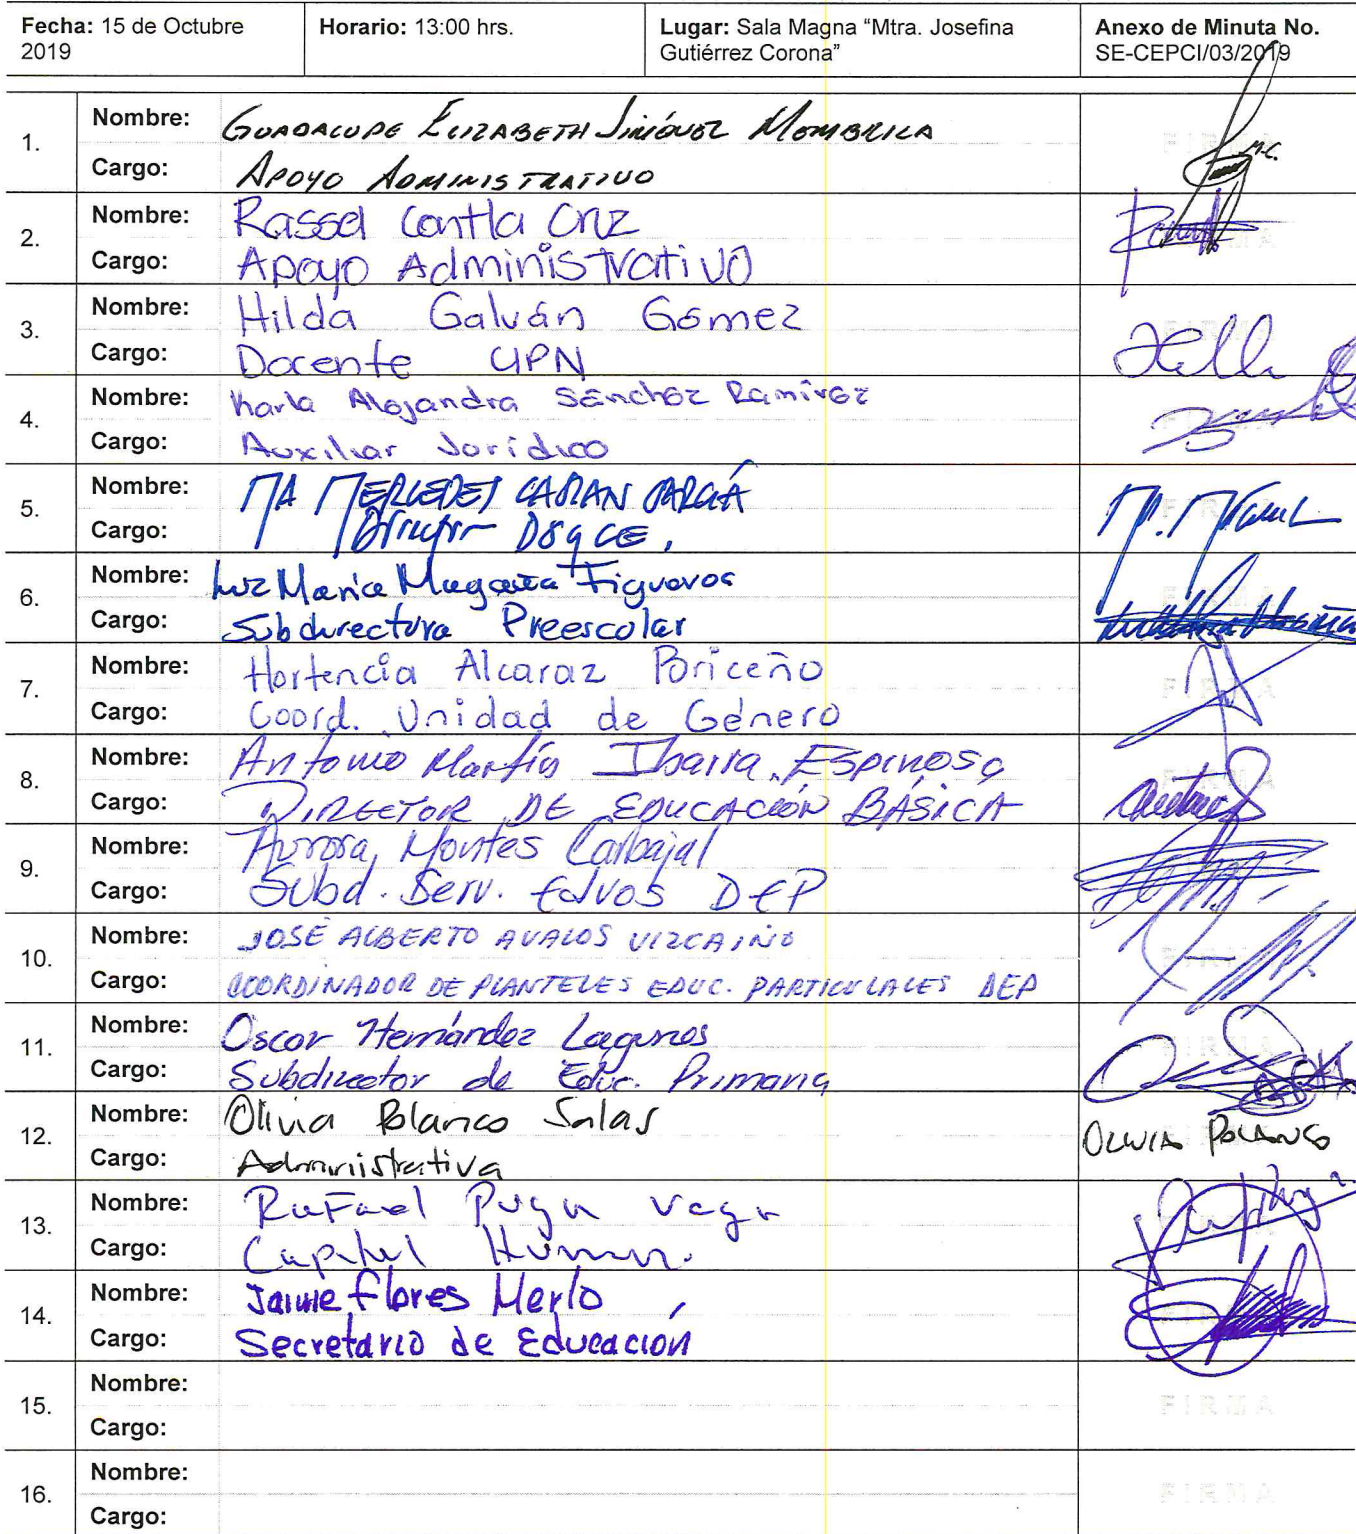 Fecha: 15 de Octubre 2019
Horario: 13:00 hrs.
Lugar: Sala Magna “Mtra. Josefina Gutiérrez Corona”
Anexo de Minuta No. SE-CEPCI/03/2019
1.
Nombre: GUADALUPE ELIZABETH JIMÉNEZ MOMBRILA
Cargo: APOYO ADMINISTRATIVO
2.
Nombre: Rassel Contla Cruz
Cargo: Apoyo Administrativo
3.
Nombre: Hilda Galván Gómez
Cargo: Docente UPN
4.
Nombre: Karla Alejandra Sánchez Ramírez
Cargo: Auxiliar Jorídico
5.
Nombre: MA MERCEDES GARCÍA
Cargo:
6.
Nombre: Luz María Magaña Figueroa
Cargo: Subdirectora Preescolar
7.
Nombre: Hortencia Alcaraz Briceño
Cargo: Coord. Unidad de Género
8.
Nombre: Antonio Martín Ibarra Espinosa
Cargo: DIRECTOR DE EDUCACIÓN BÁSICA
9.
Nombre: Aurora Montes Carbajal
Cargo: Subd. Serv. Edvos DEP
10.
Nombre: JOSÉ ALBERTO AVALOS VIZCAINO
Cargo: COORDINADOR DE PLANTELES EDUC. PARTICULALES DEP
11.
Nombre: Oscar Hernández Lagunes
Cargo: Subdirector de Educ. Primaria
12.
Nombre: Olivia Polanco Salas
OLIVIA POLANCO
Cargo: Administrativa
13.
Nombre: Rafael Puga Vega
Cargo: Capital Human.
14.
Nombre: Jaime Flores Merlo
Cargo: Secretario de Educación
15.
Nombre:
FIRMA
Cargo:
16.
Nombre:
FIRMA
Cargo: